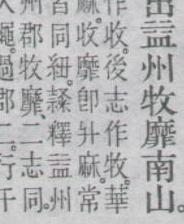 出益州牧靡南山。
作收。後志作牧。華
收靡。卽升麻。常
同。釋益州
州郡牧靡、二志同。
繩。過郡二。行千